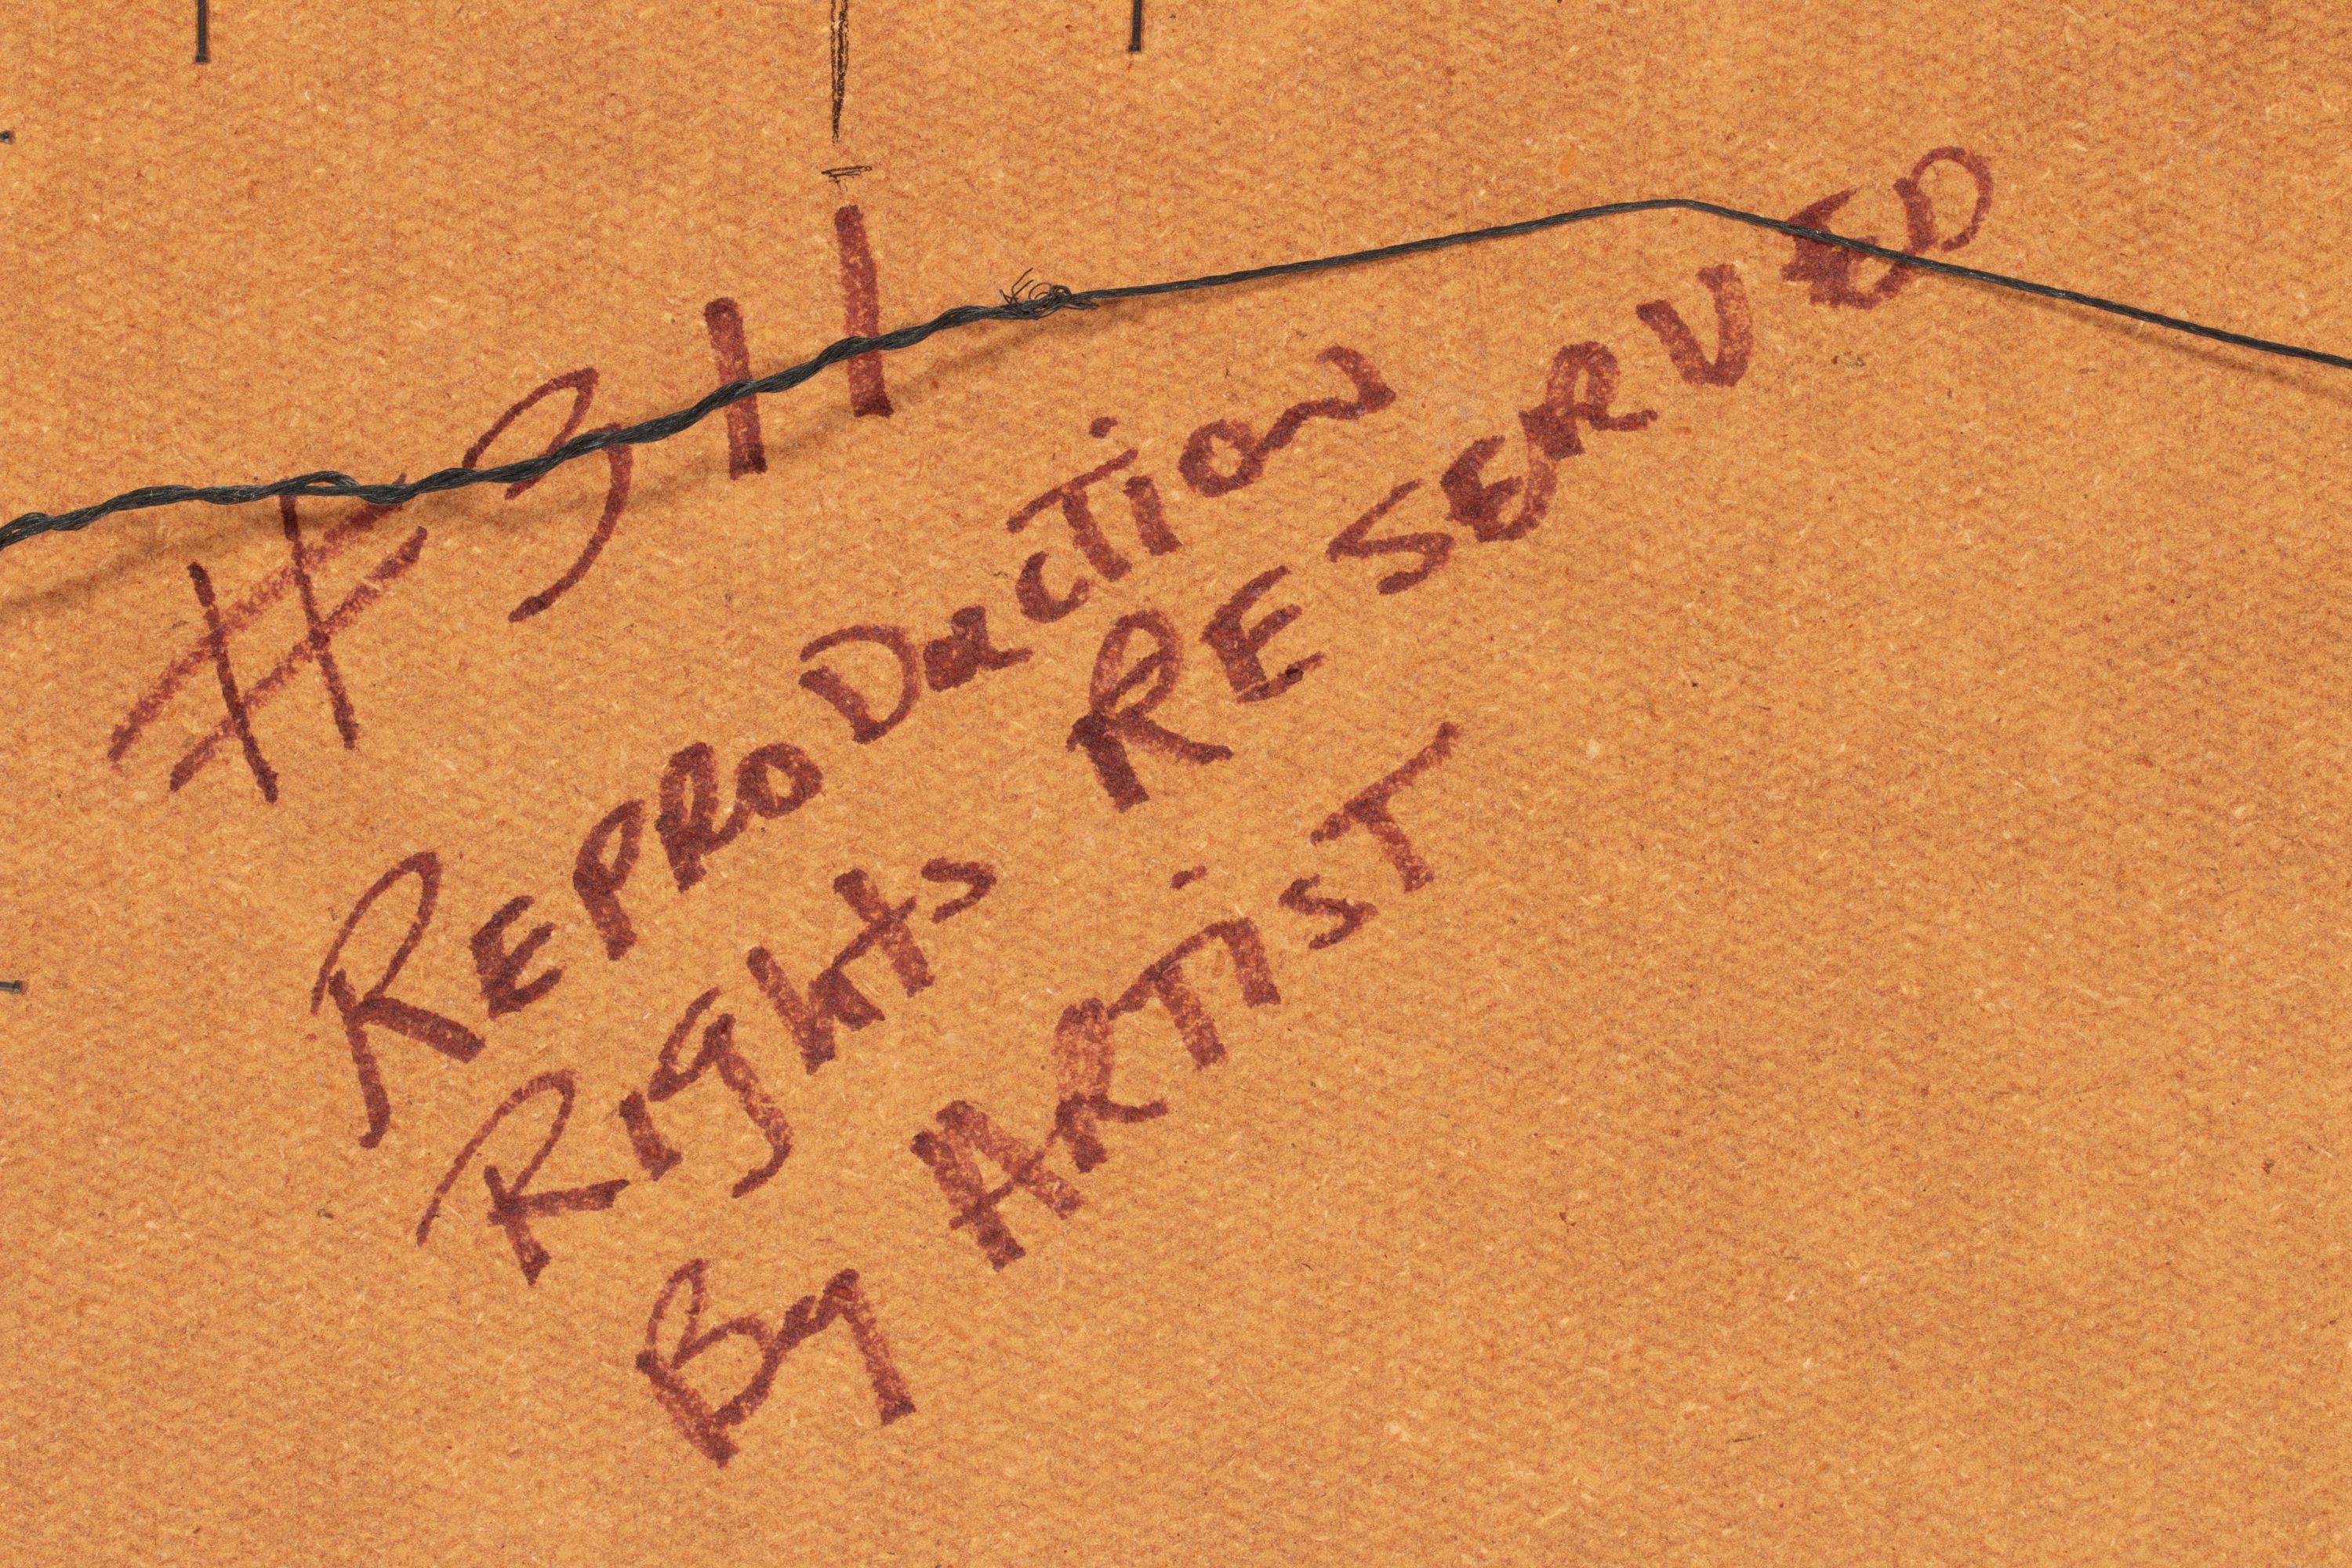 #311
REPRODUCTION
Rights RESERVED
By ARTisT